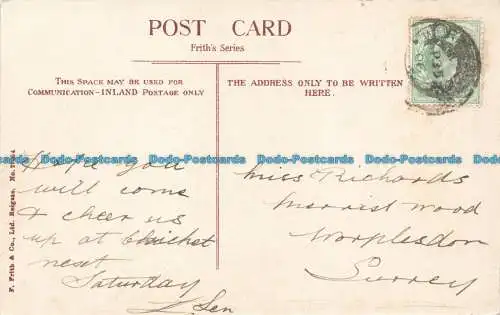 POST CARD
Frith's Series
THIS SPACE MAY BE USED FOR
COMMUNICATION-INLAND POSTAGE ONLY
THE ADDRESS ONLY TO BE WRITTEN
HERE.
Hope you
will come
& cheer us
up at Cricket
next
Saturday
Miss Richards
Merrist Wood
Worplesdon
Surrey
F. Frith & Co., Ltd. Reigate. No.
Dodo-Postcards Dodo-Postcards Dodo-Postcards Dodo-Postcards